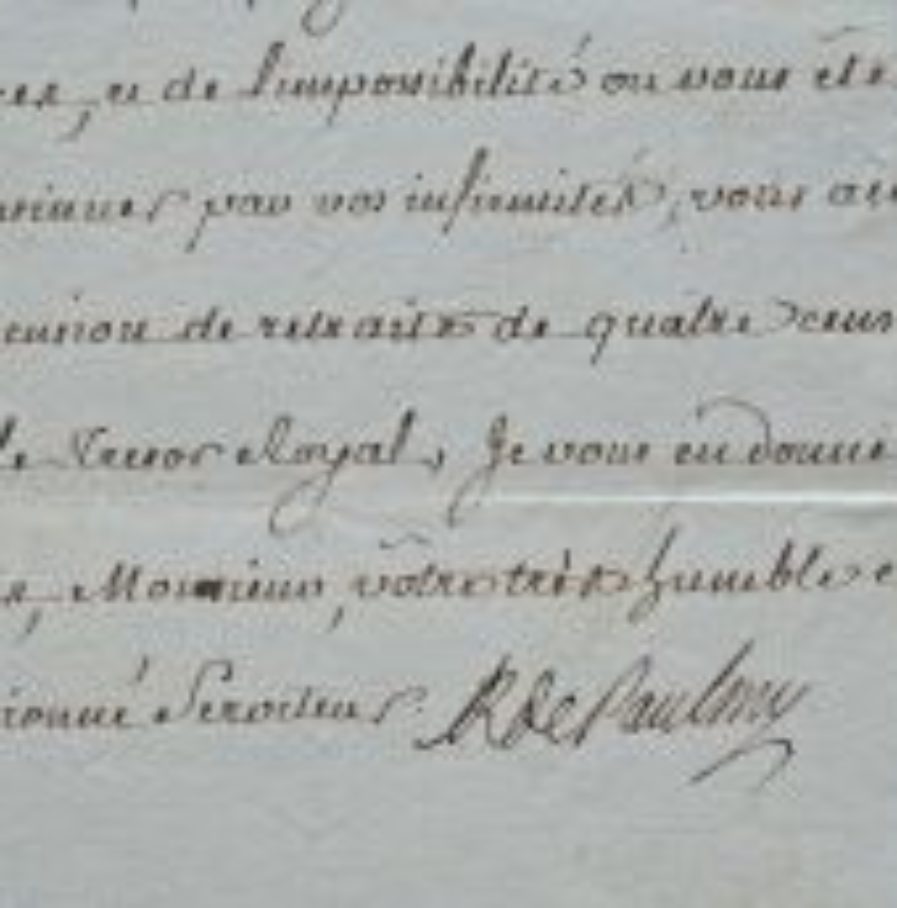 et de l'impossibilité ou vous étes
par vos infirmités, vous
de retraite de quatre cens
le Tresor Royal, Je vous en donne
Monsieur, vôtre très humble e
ionné Serviteur. R de Paulmy